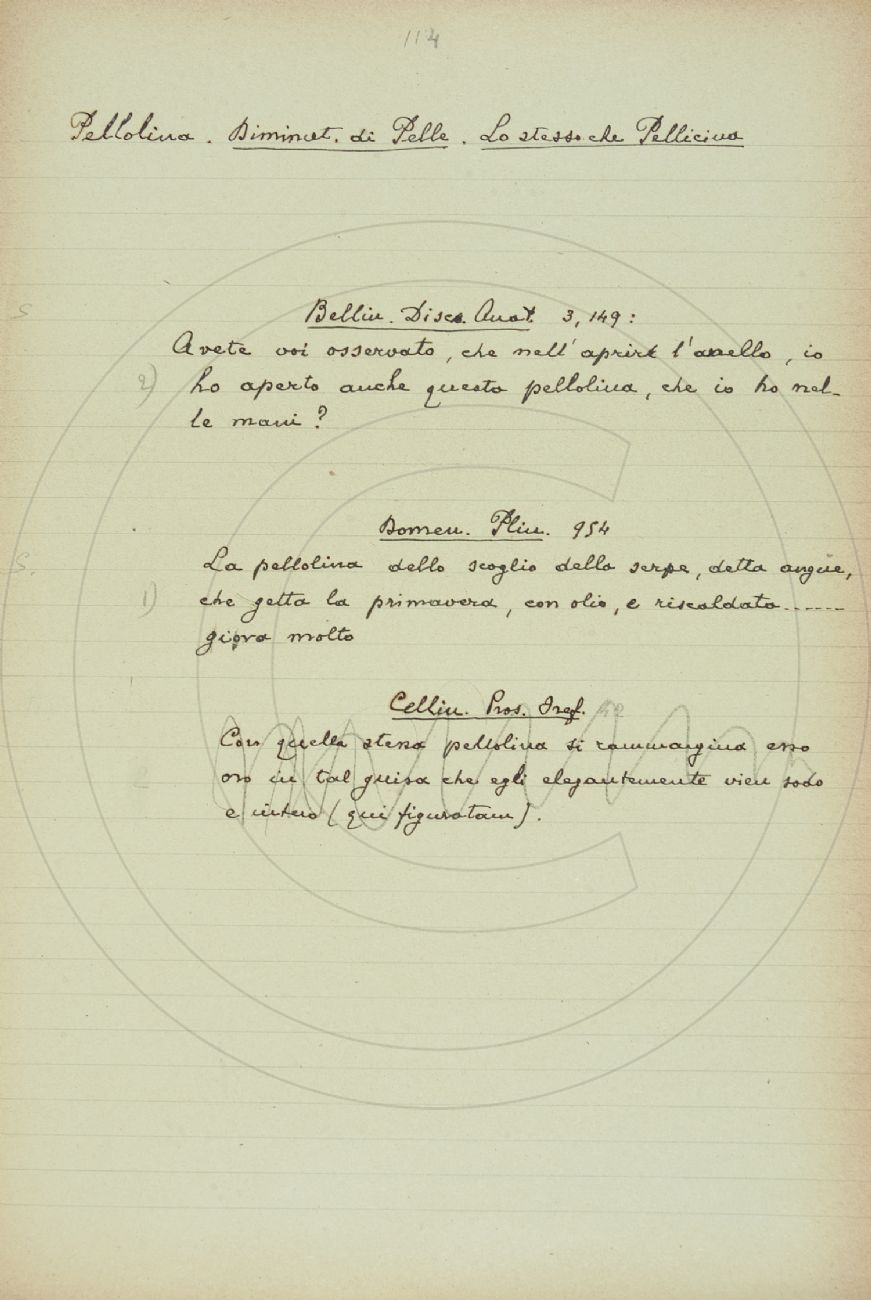 114
Pellolina. Diminut. di Pelle. Lo stesso che Pellicina
S
Bellin. Disc. Anat. 3, 149:
Avete voi osservato, che nell'aprire l'anello, io
2) ho aperto anche questa pellolina, che io ho nel-
le mani?
Domen. Plin. 954
S. La pellolina dello scoglio della serpe, detta angue,
1) che getta la primavera, con olio, e riscaldata......
giova molto
Cellin. Pros. Oref.
Con quella stessa pellolina si rammargina esso
oro in tal guisa che egli elegantemente vien sodo
e intero (qui figuratam).